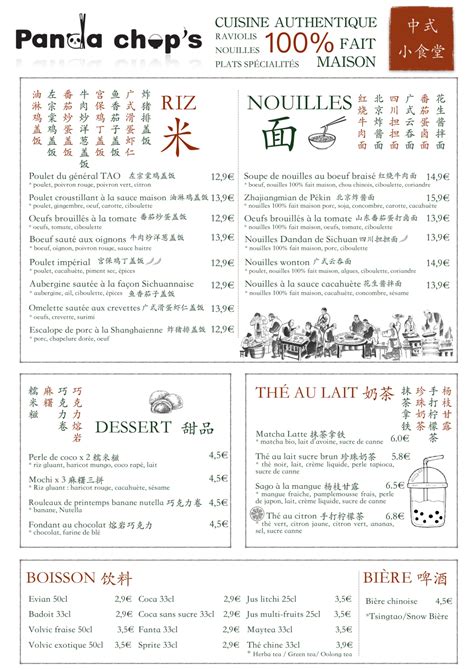 Panda chop's
CUISINE AUTHENTIQUE
RAVIOLIS
NOUILLES
PLATS SPÉCIALITÉS
100% FAIT
MAISON
中式
小食堂
炸猪排盖饭
广式滑蛋虾仁
鱼香茄子盖饭
宫保鸡丁盖饭
牛肉炒洋葱盖饭
番茄炒蛋盖饭
左宗棠鸡盖饭
油淋鸡盖饭
RIZ
米
Poulet du général TAO 左宗棠鸡盖饭 12,9€
* poulet, poivron rouge, poivron vert, citron
Poulet croustillant à la sauce maison 油淋鸡盖饭 13,9€
* poulet, gingembre, oeuf, carotte, ciboulette
Oeufs brouillés à la tomate 番茄炒蛋盖饭 12,9€
* oeufs, tomate, ciboulette
Boeuf sauté aux oignons 牛肉炒洋葱盖饭 13,9€
* boeuf, oignon, poivron rouge, sauce huitre
Poulet impérial 宫保鸡丁盖饭 12,9€
* poulet, cacahuète, piment sec, épices
Aubergine sautée à la façon Sichuannaise 12,9€
* aubergine, ail, ciboulette 鱼香茄子盖饭
Omelette sautée aux crevettes 广式滑蛋虾仁盖饭 13,9€
* oeufs, crevette, surimi
Escalope de porc à la Shanghaienne 炸猪排盖饭 12,9€
* porc, chapelure dorée, oeuf
NOUILLES
面
花生酱拌面
番茄蛋打卤面
广式云吞面
四川担担面
北京炸酱面
红烧牛肉面
Soupe de nouilles au boeuf braisé 红烧牛肉面 14,9€
* boeuf, nouilles 100% fait maison, chou chinois, ciboulette, coriandre
Zhajiangmian de Pékin 北京炸酱面 15,9€
* nouilles 100% fait maison, porc, soja, concombre, carotte, cacahuète
Oeufs brouillés à la tomate 山东番茄蛋打卤面 13,9€
* oeufs, nouilles 100% fait maison, tomate, ciboulette
Nouilles Dandan de Sichuan 四川担担面 13,9€
* nouilles 100% fait maison, porc, ciboulette
Nouilles wonton 广式云吞面 13,9€
* nouilles 100% fait maison, porc, algues, ciboulette, coriandre
Nouilles à la sauce cacahuète 花生酱拌面 12,9€
* nouilles 100% fait maison, cacahuète, concombre, sésame
巧克力熔岩
巧克力卷
麻糬
糯米糍
DESSERT 甜品
Perle de coco x 2 糯米糍 4,5€
* riz gluant, haricot mungo, coco rapé, lait
Mochi x 3 麻糬三拼 4,5€
* Riz gluant, haricot rouge, cacahuète, sésame
Rouleaux de printemps banane nutella 巧克力卷 4,5€
* banane, Nutella
Fondant au chocolat 熔岩巧克力 4,5€
* chocolat, farine de blé
THÉ AU LAIT 奶茶
杨枝甘露
手打柠檬茶
珍珠奶茶
抹茶拿铁
Matcha Latte 抹茶拿铁 6.0€
* matcha bio, lait d'avoine, sucre de canne
Thé au lait sucre brun 珍珠奶茶 5.8€
* thé noir, crème, lait liquide, perle tapioca, sucre de canne
Sago à la mangue 杨枝甘露 6.5€
* mangue fraiche, pamplemousse frais, perle de japon, lait, crème, lait liquide, sucre de canne
Thé au citron 手打柠檬茶 6.8€
* thé vert, citron jaune, citron vert, ananas, sel, sucre de canne
BOISSON 饮料
Evian 50cl 2,9€
Coca 33cl 2,9€
Jus litchi 25cl 3,5€
Badoit 33cl 2,9€
Coca sans sucre 33cl 2,9€
Jus multi-fruits 25cl 3,5€
Volvic fraise 50cl 3,5€
Fanta 33cl 2,9€
Maytea 33cl 3,5€
Volvic exotique 50cl 3,5€
Sprite 33cl 2,9€
Thé chinois 33cl 3,5€
* Herba tea / Green tea/ Oolong tea
BIÈRE 啤酒
Bière chinoise 4,5€
*Tsingtao/Snow Bière